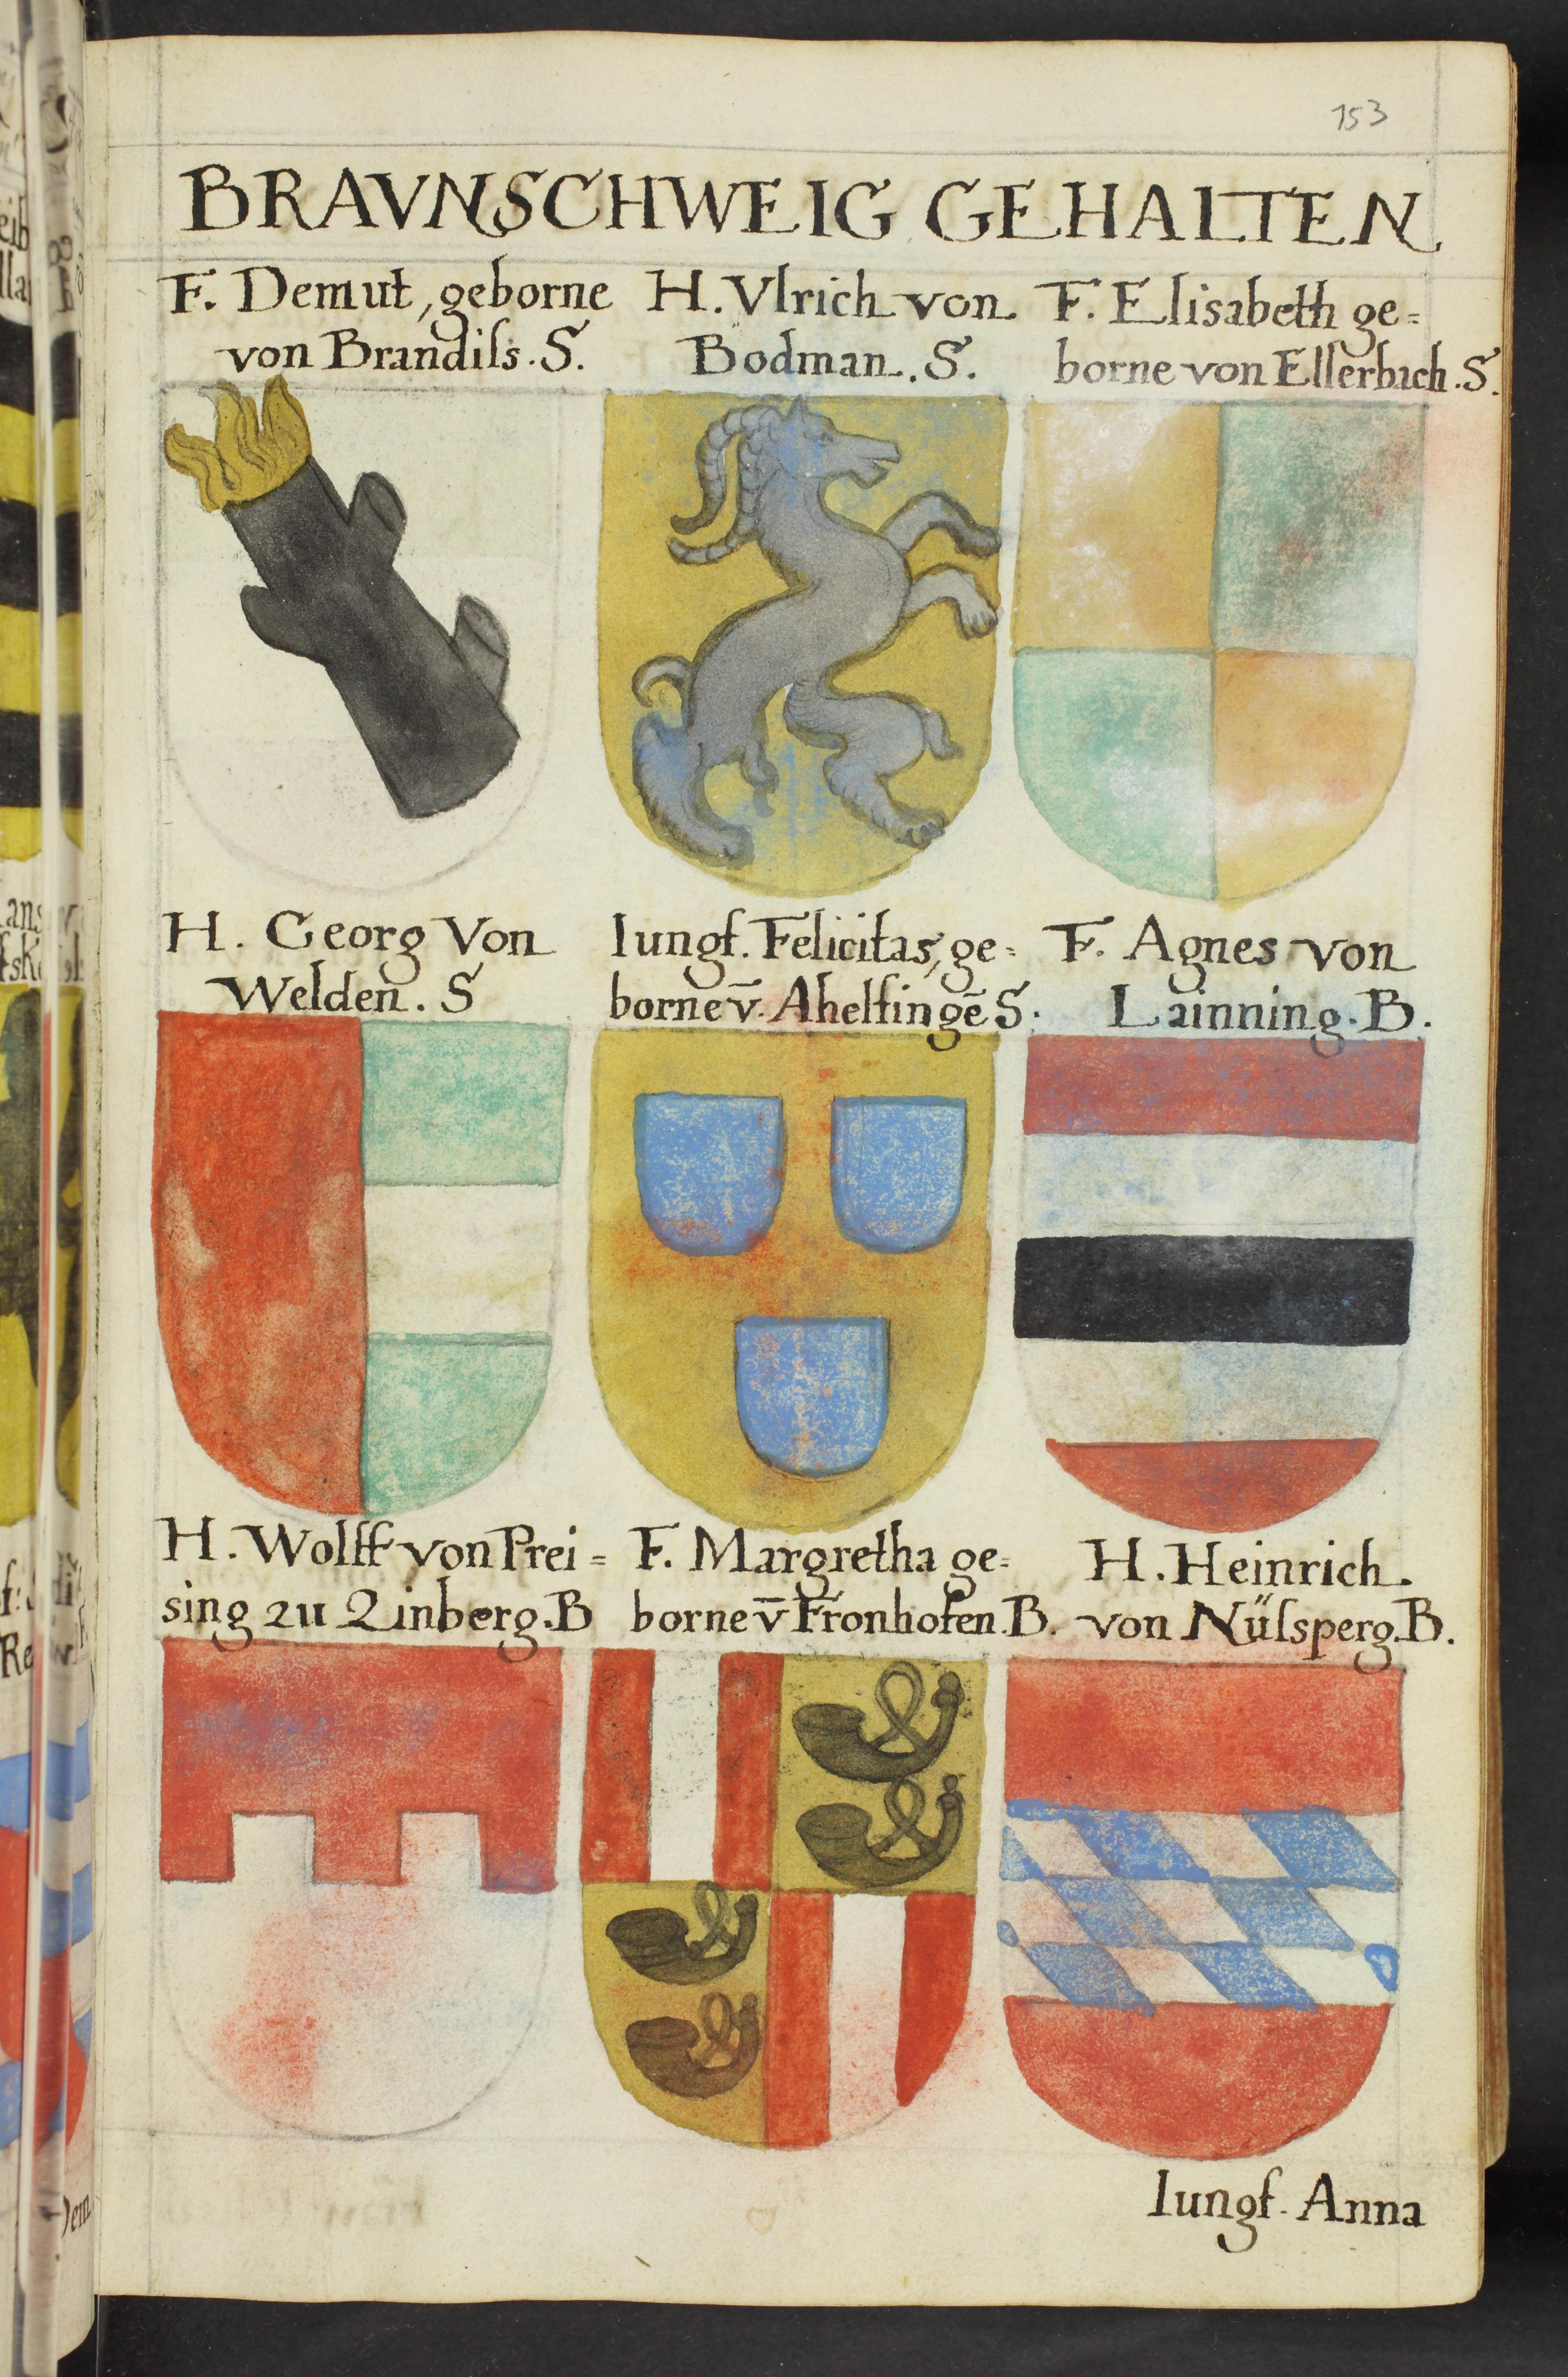 153
BRAVNSCHWEIG GEHALTEN
F. Demut, geborne
von Brandiſs. S.
H. Vlrich von
Bodman. S.
F. Elisabeth ge=
borne von Ellerbach. S.
H. Georg Von
Welden. S
Iungf. Felicitas, ge=
borne v̄. Ahelfingē S.
F. Agnes von
Lainning. B.
H. Wolff von Prei=
sing zu Linberg. B
F. Margretha ge=
borne v̄ Fronhofen. B.
H. Heinrich
von Nüſsperg. B.
Iungf. Anna